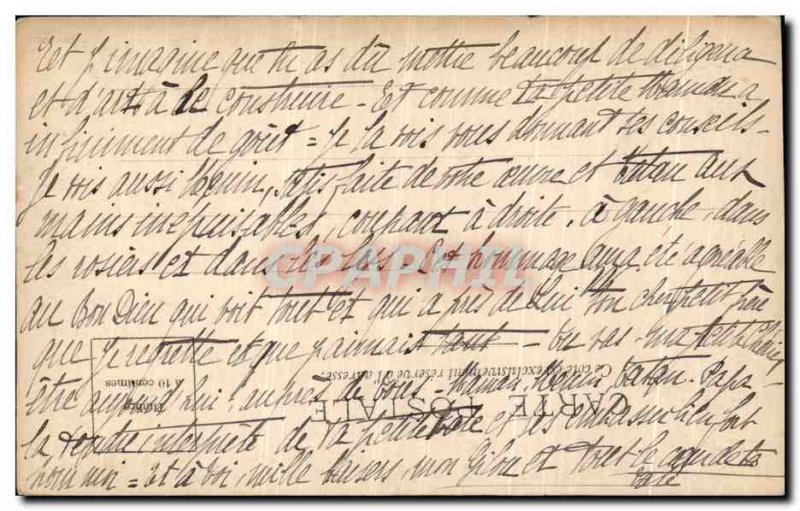 Et j'imagine que tu as dû mettre beaucoup de diligence
et d'art à le construire - Et comme ta petite Maman a
infiniment de goût = Je la vois vous donnant ses conseils -
Je vois aussi satisfaite de votre œuvre et Tatan aux
mains inépuisables, coupant à droite, à gauche, dans
les rosiers et dans les lys. Cet hommage aura été agréable
au Bon Dieu qui voit tout et qui a près de Lui ton cher petit frère
que je regrette et que j'aimais tant - Tu vas, ma petite
être aujourd'hui auprès de vous - Maman, Tatan, Papa
la tendre interprète de ta petite et les embrasser bien fort
pour moi = Et à toi, mille baisers, mon et tout le
CARTE POSTALE
Ce côté est exclusivement réservé à l'adresse.
Timbre
à 10 centimes
CPAPHIL